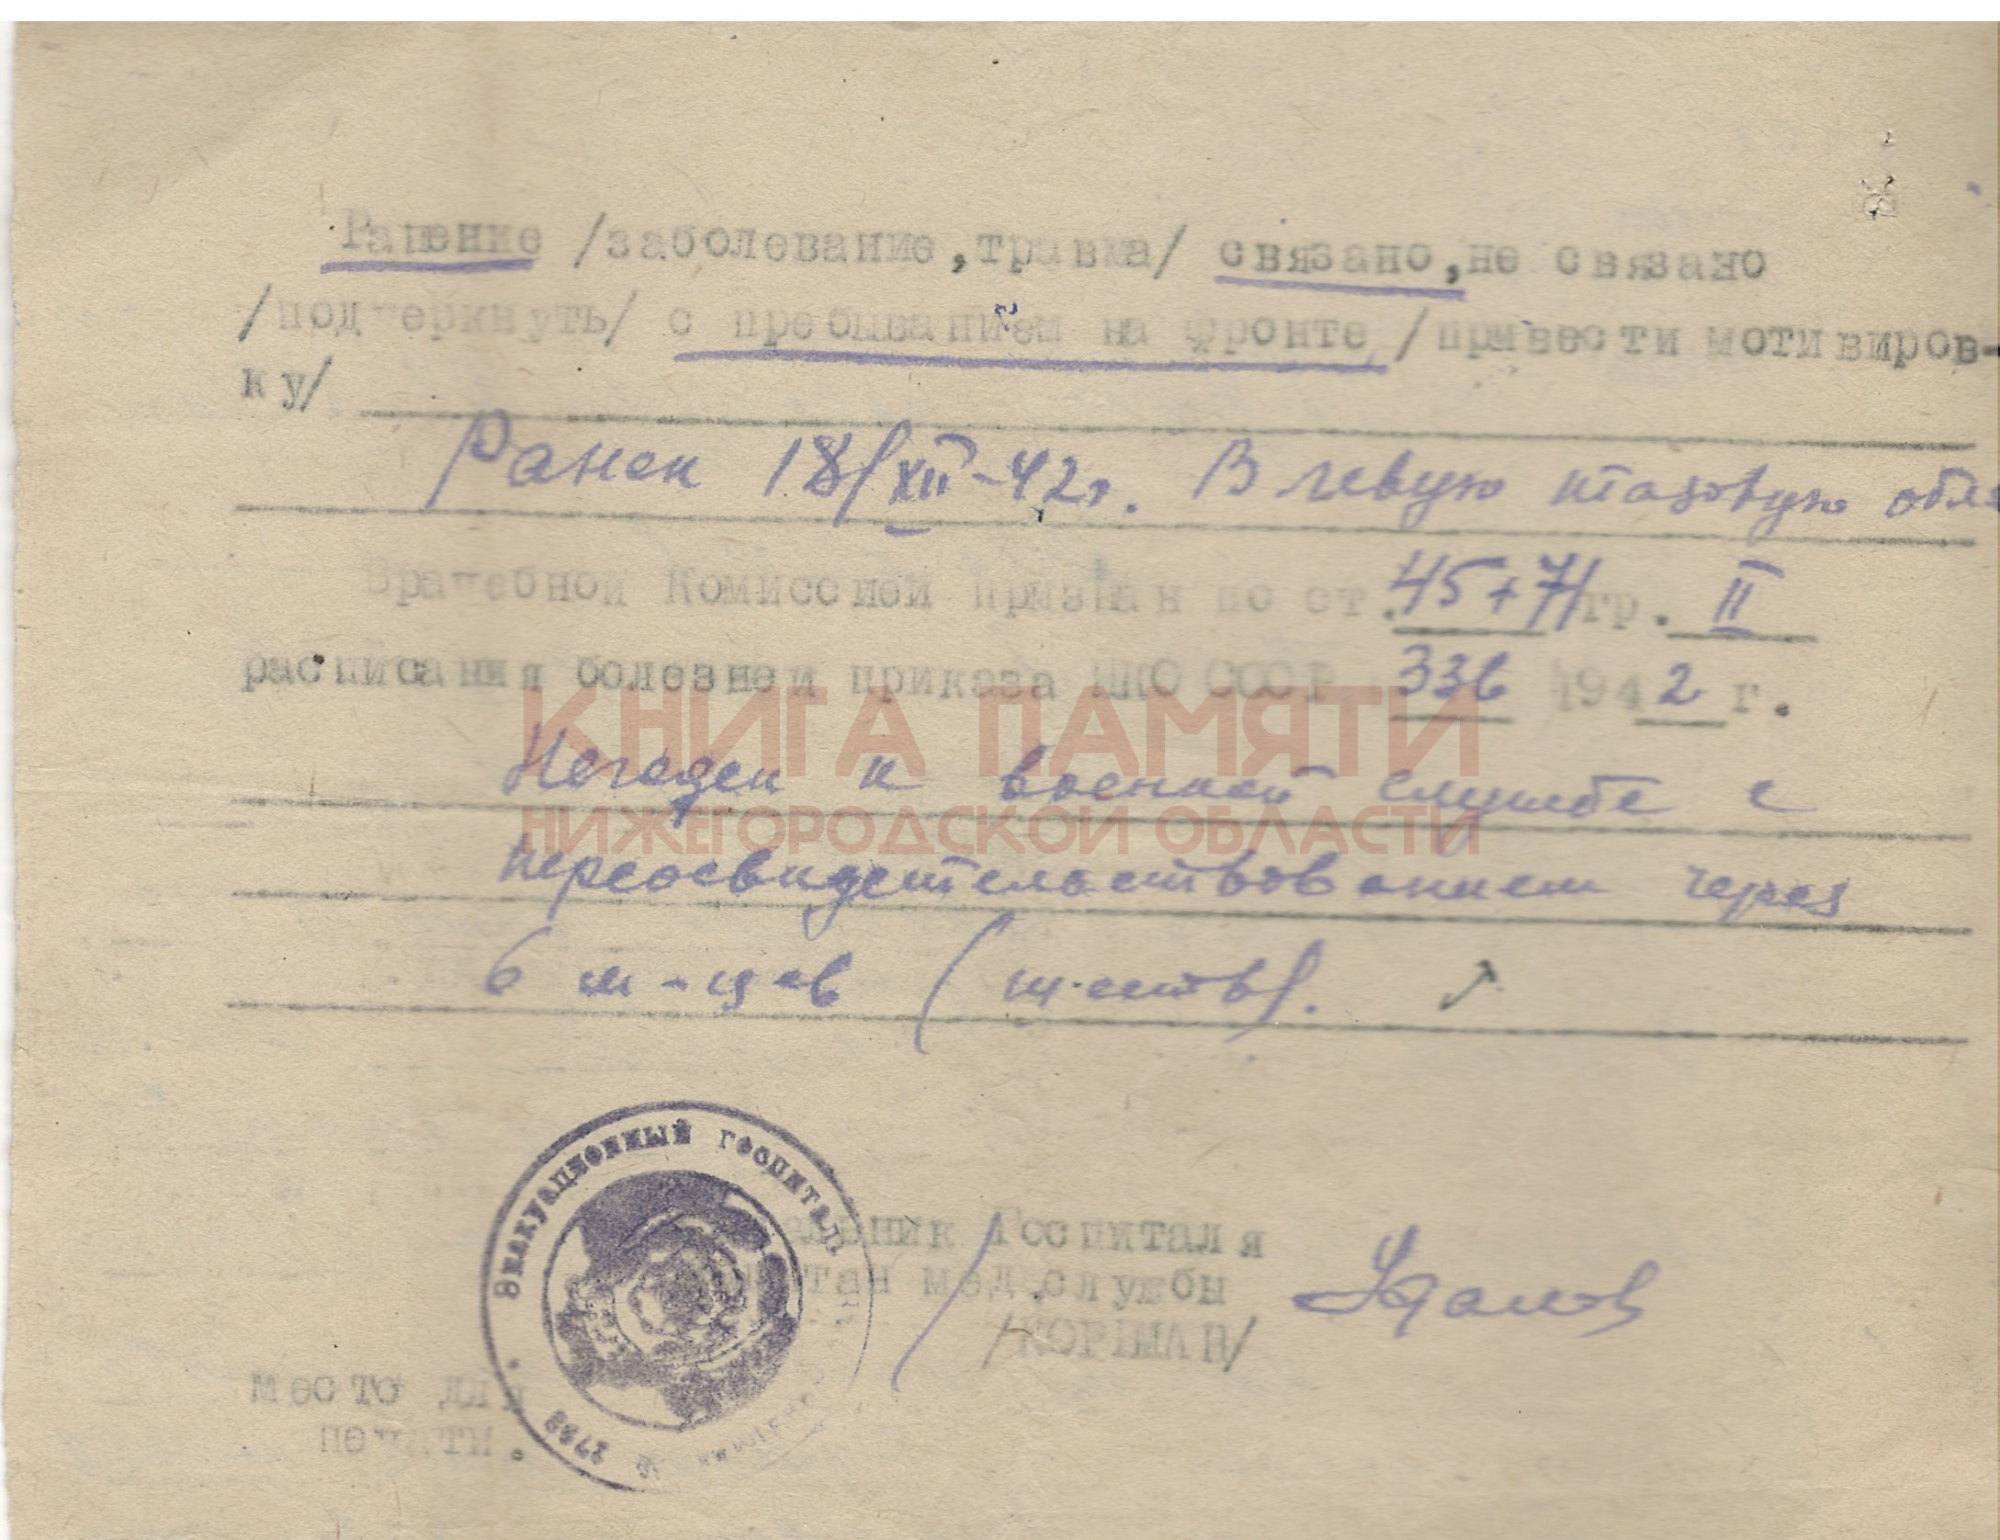 Ранение /заболевание, травма/ связано, не связано
/подчеркнуть/ с пребыванием на фронте /привести мотивиров-
ку/
Ранен 18/XII-42г. В левую тазовую обл
Врачебной Комиссией признан по ст. 45+71 гр. II
расписания болезней приказа НКО СССР 336 1942 г.
КНИГА ПАМЯТИ
Негоден к военной службе с
НИЖЕГОРОДСКОЙ ОБЛАСТИ
переосвидетельствованием через
6 м-цев (шесть).
Эвакуационный госпиталь
№ 2788
альник Госпиталя
тан мед.службы
/КОРЦМАН/
место для
печати.